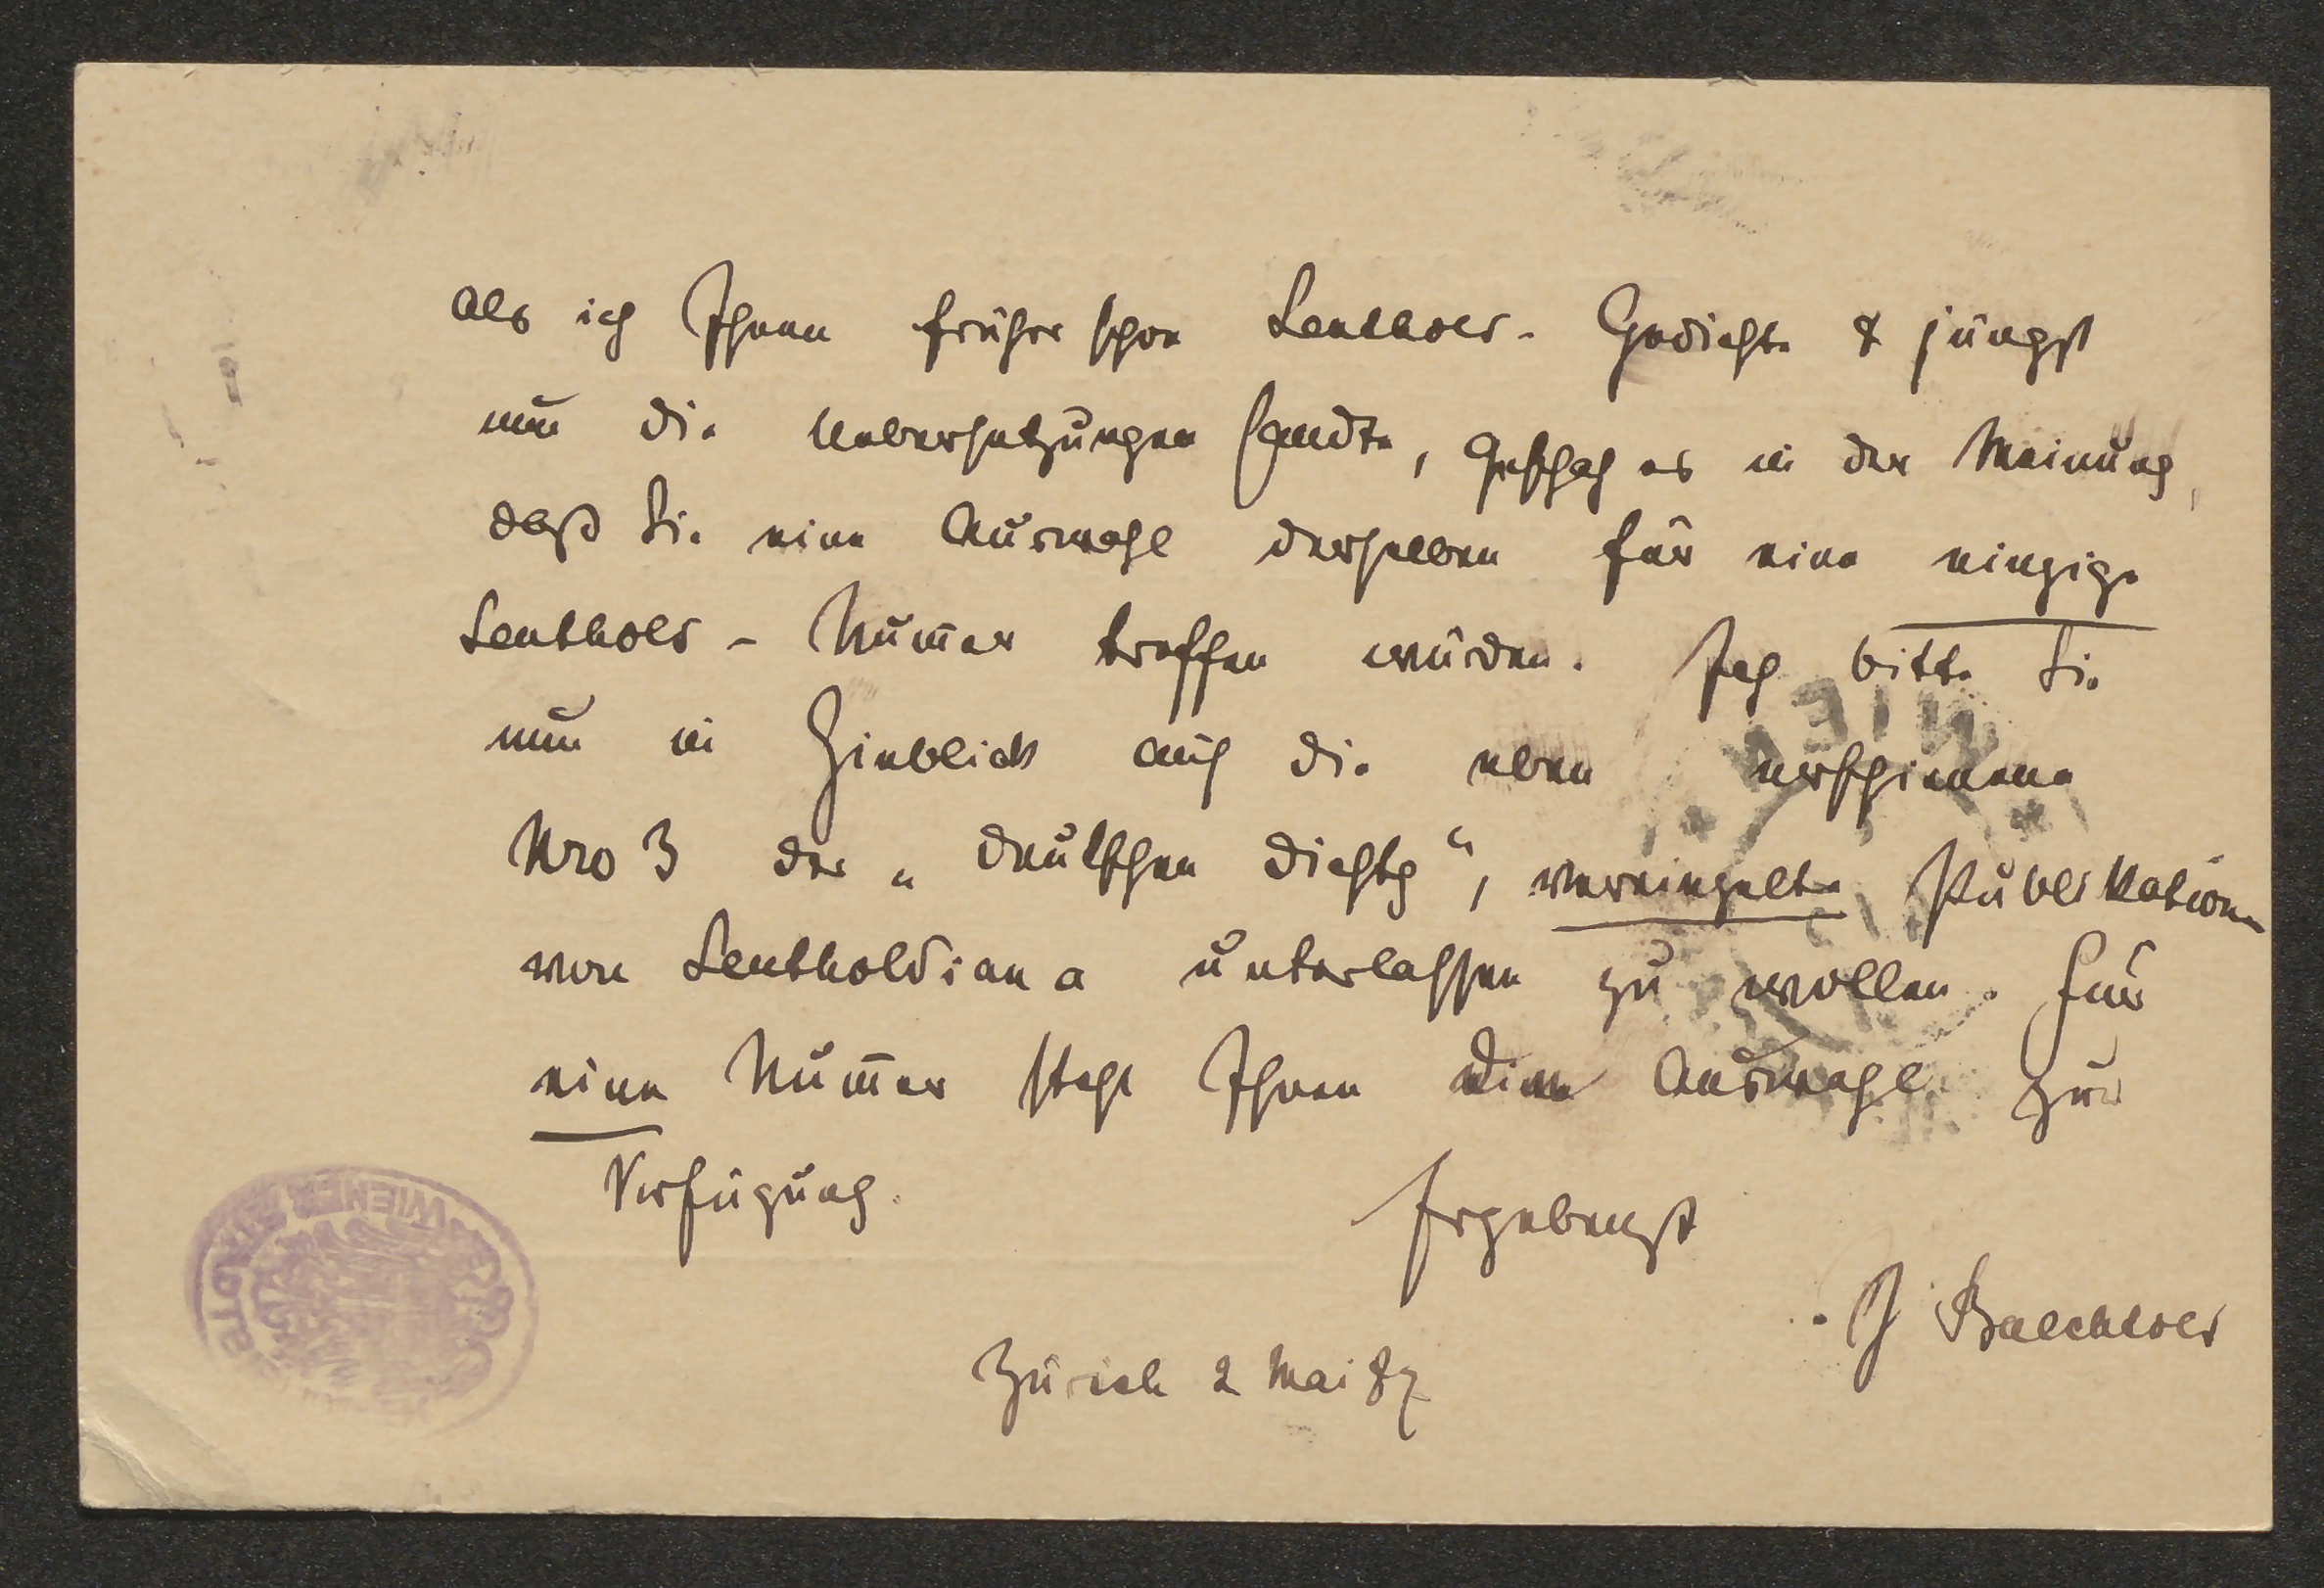 Als ich Ihnen früher schon Leuthold-Gedichte & jüngst
nun die Uebersetzungen sandte, geschah es in der Meinung,
daß Sie eine Auswahl derselben für eine einzige
Leuthold-Num̄er treffen würden. Ich bitte Sie
nun im Hinblick auf die eben erschienene
Nro 3 der „deutschen Dichtg“, vereinzelte Publikationen
von Leutholdiana unterlassen zu wollen. Für
eine Num̄er steht Ihnen eine Auswahl zur
Verfügung.
Ergebenst
J Baechtold
Zürich 2 Mai 87
WIEN
WIENER STADTBIBLIOTHEK